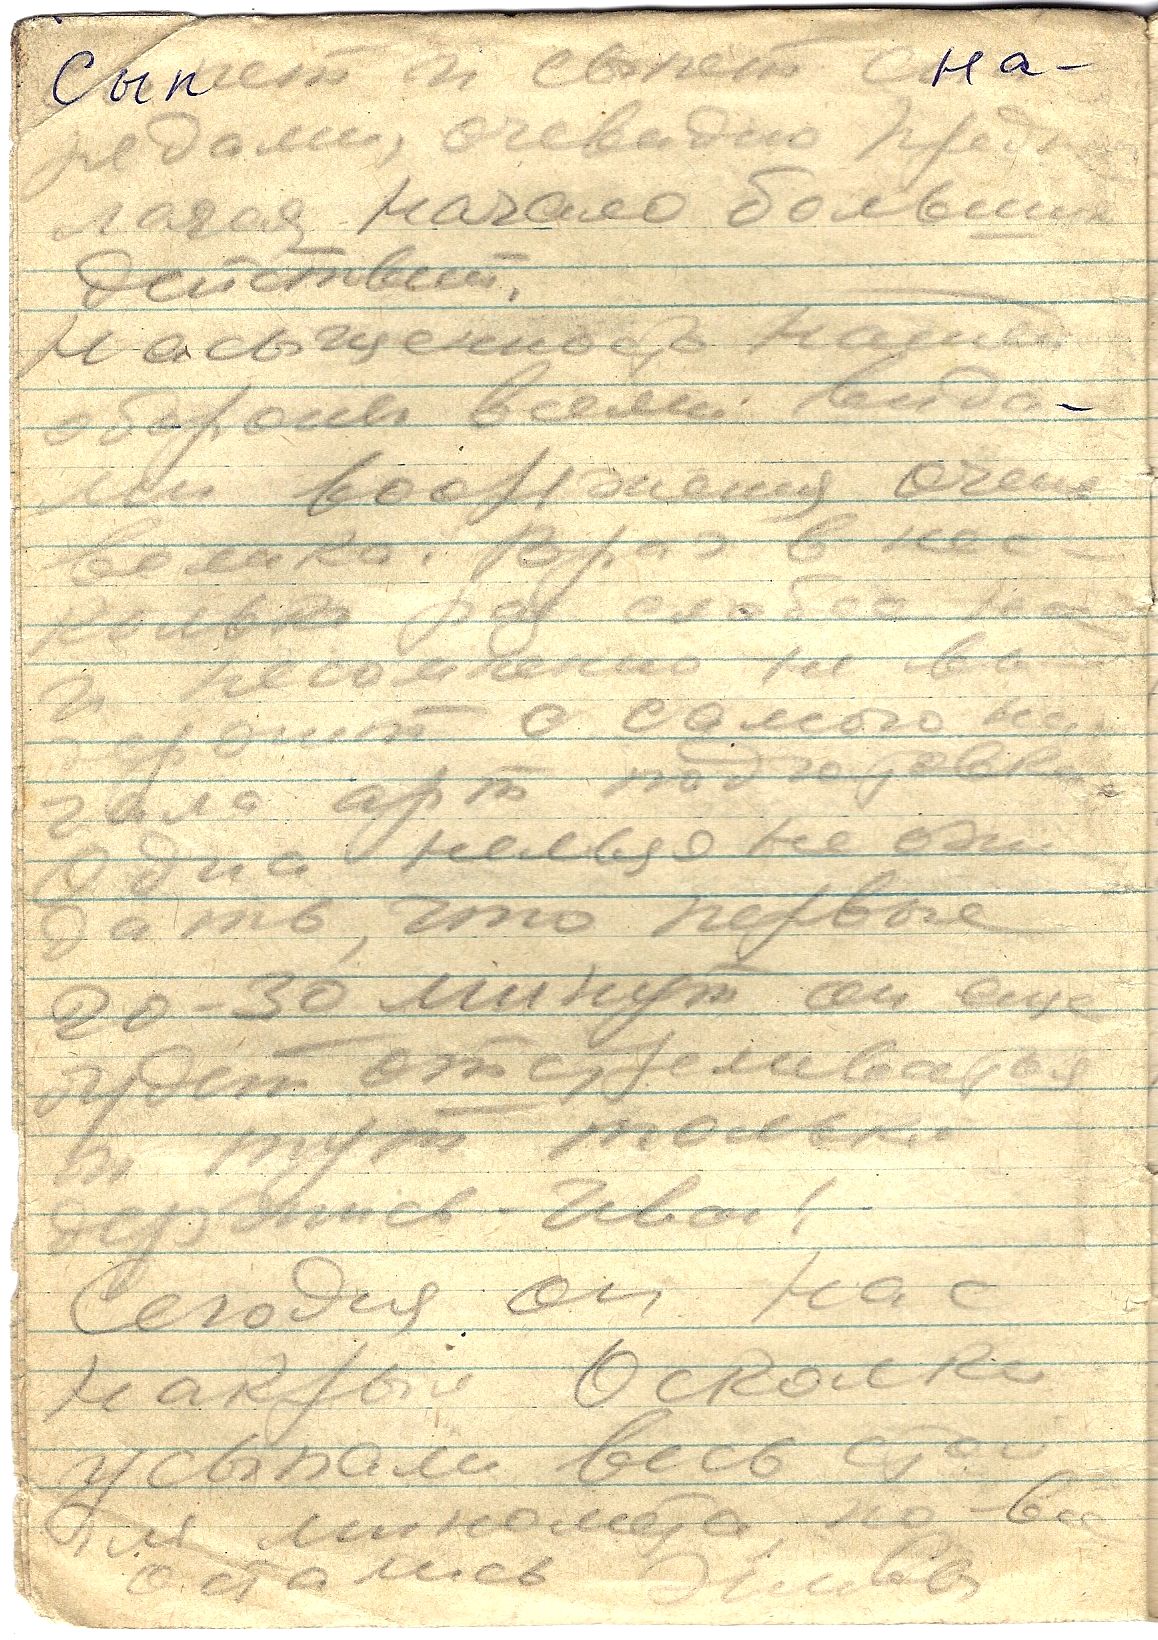 Сыплет и сыплет сна-
рядами, очевидно предпо
лагая начало больших
действий.
Насыщенность нашей
обороны всеми вида-
ми вооружения очень
велика. Враг в нес-
колько раз слабее нас
и несомненно не вы
держит с самого на
чала арт подготовки.
Одна нельзя не ожи
дать, что первые
20-30 минут он еще
будет отстреливаться
и тут только
держись - Иван!
Сегодня он нас
накрыл Осколки
усыпали весь
миномета, но все
остались живы